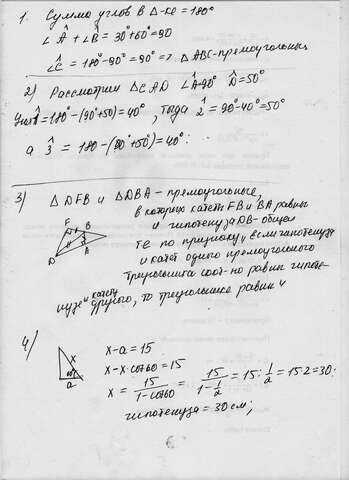 1. Сумма углов в Δ-ке = 180°
∠Â + ∠B̂ = 30°+60°=90
∠Ĉ = 180°-90° = 90° => ΔABC-прямоугольник
2) Рассмотрим ΔCAD ∠Â=90° D̂=50°
1̂=180°-(90°+50)=40°, тогда 2̂ = 90°-40°=50°
а 3̂ = 180-(90°+50°)=40°:
3) ΔDFB и ΔDBA - прямоугольные,
в которых катеты FB и BA равны
и гипотенуза DB-общая
те по признаку, если гипотенуза
и катет одного прямоугольного
треугольника соот-но равны гипоте-
нузе и катету другого, то треугольники равны
F B
D A
4)
x-a=15
x-x·cos60=15
x = 15/(1-cos60) = 15/(1-1/2) = 15:1/2=15·2=30:
гипотенуза = 30 см;
x
60°
a